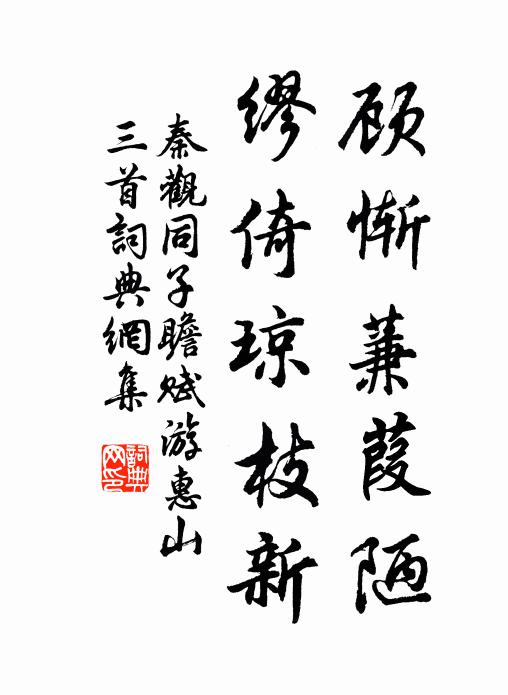 顾惭蒹葭陋
缪倚琼枝新
秦觀同子瞻赋游惠山
三首詞典網集
詞典网印